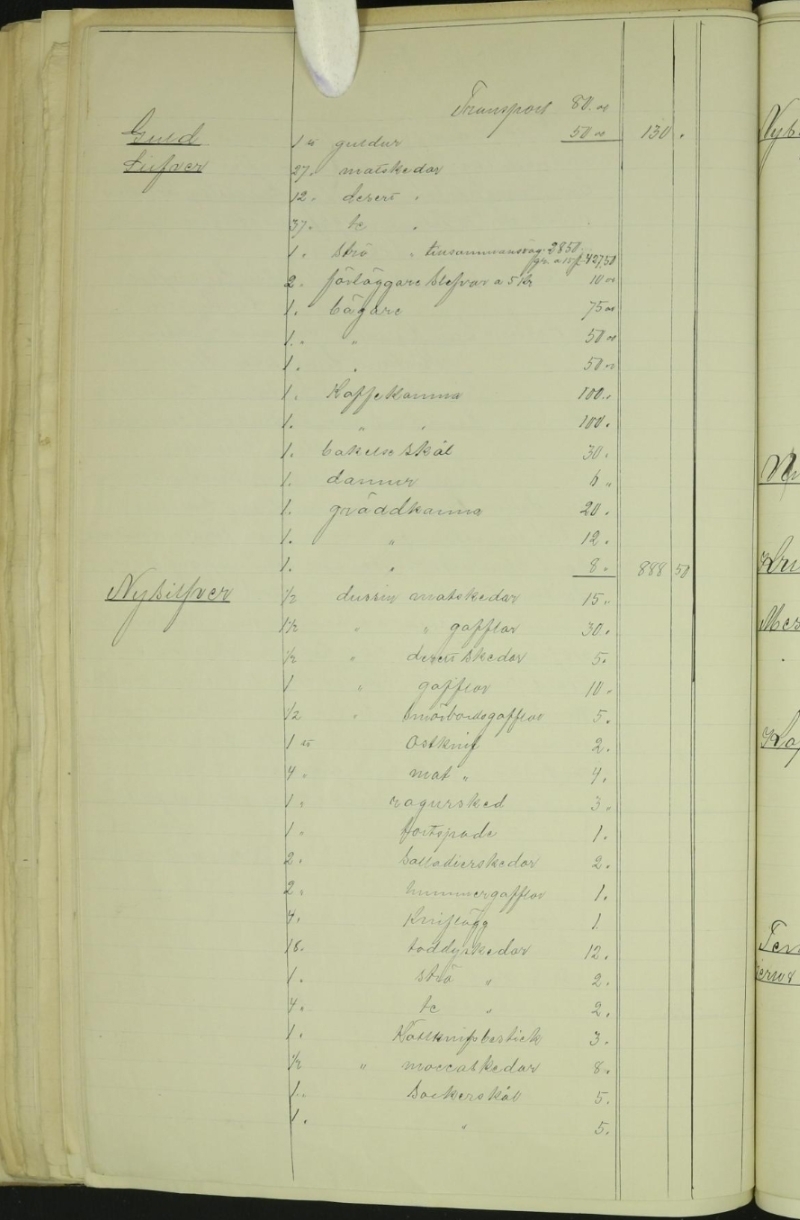 Transport 80.00
Guld 1 st guldur 50.00 130 .
Silfver 27. matskedar
12. desert "
37. te "
1. strö " tillsammansväg 2850 gr. a 15 f. 427,50
2. förläggare slefvar a 5 kr 10.00
1. bägare 75.00
1. " 50.00
1. " 50.00
1. Kaffekanna 100.
1. " " 100.
1. bakelse skål 30.
1. 6 "
1. gräddkanna 20.
1. " 12.
1. " 8. 888 50
Nysilfver 1/2 dussin matskedar 15.
1 1/2 " " gafflar 30.
1/2 " desert skedar 5.
1 " gafflar 10.
1/2 " smörbordsgafflar 5.
1 st Ostknif 2.
4. mat " 4.
1. ragursked 3.
1. tortspade 1.
2. Salladierskedar 2.
2. hummergafflar 1.
4. Kniflägg 1
18. toddyskedar 12.
1. strö " 2.
4. te " 2.
1. bestick 3.
1/2 " moccaskedar 8.
1. Sockerskål 5.
1. " 5.